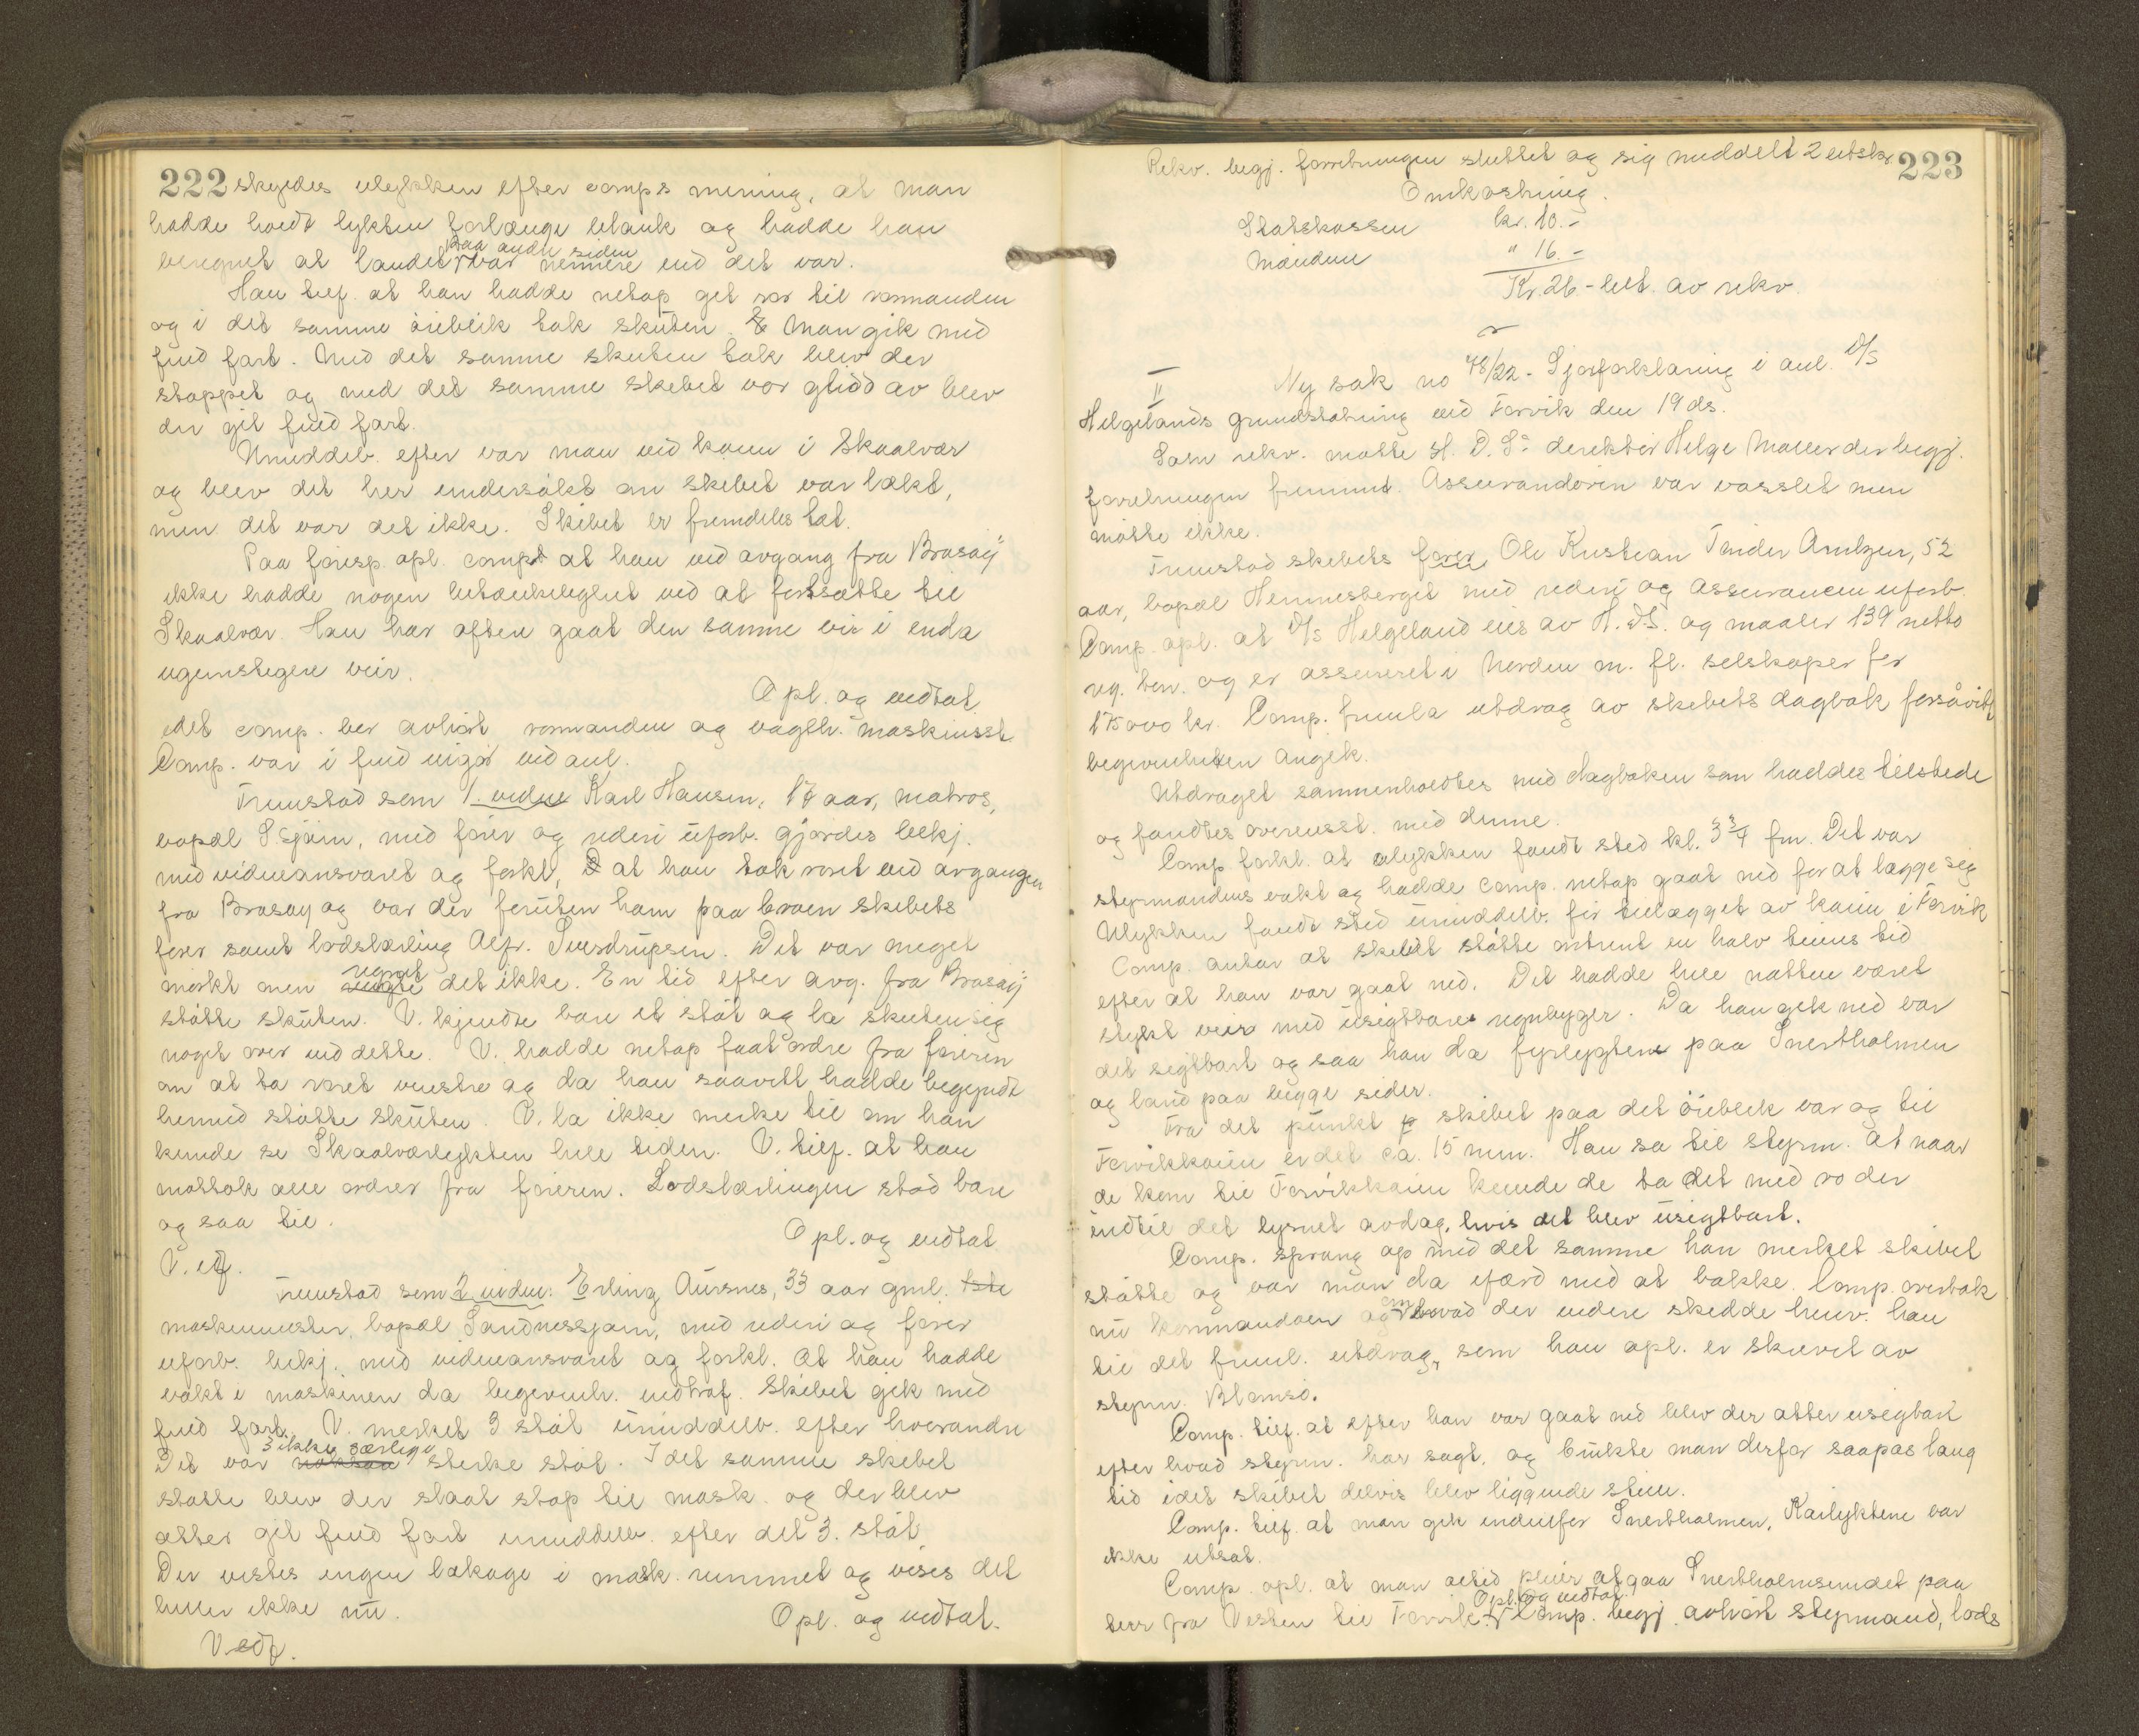 222 skyldes ulykken efter comps mening, at man
hadde holdt lykten forlænge blank og hadde han
beregnet at landet paa andre siden var nærmere end det var.
Han tilf. at han hadde netop git ror til rormanden
og i det samme øieblik tok skuten. Man gik med
fuld fart. Med det samme skuten tok blev der
stoppet og med det samme skibet var glidd av blev
der git fuld fart.
Umiddelb. efter var man ved kaien i Skaalvær
og blev det her undersøkt om skibet var lækt,
men det var det ikke. Skibet er fremdeles tæt.
Paa foresp. opl. comp at han ved avgang fra Brasøy
ikke hadde nogen betænkelighet ved at fortsætte til
Skaalvær. Han har ofte gaat den samme vei i enda
ugunstigere veir.
Opl. og vedtat.
idet comp. ber avhørt rormanden og vagth. maskinist.
Comp. var i fuld vigør ved anl.
Fremstod som 1. vidne Karl Hansen, 17 aar, matros,
bopæl Sjøm, med fører og rederi uforb. gjordes bekj.
med vidneansvaret og forkl, at han tok roret ved avgangen
fra Brasøy og var der foruten ham paa broen skibets
fører samt lodslærling Alfr. Sivertsen. Det var meget
mørkt men regnet det ikke. En tid efter avg. fra Brasøy
støtte skuten. V. kjendte bare et støt og la skuten sig
noget over ved dette. V. hadde netop faat ordre fra føreren
om at ta roret venstre og da han saavidt hadde begyndt
hermed støtte skuten. V. la ikke merke til om han
kunde se Skaalværlykten hele tiden. V. tilf. at han
mottok alle ordrer fra føreren. Lodslærlingen stod bare
og saa til.
Opl. og vedtat
V. edf.
Fremstod som 2 vidne: Erling Aursnes, 33 aar gml. 1ste
maskinmester, bopæl Sandnessjøen, med rederi og fører
uforb. bekj. med vidneansvaret og forkl. at han hadde
vakt i maskinen da begivenh. indtraf. Skibet gik med
fuld fart. V. merket 3 støt umiddelb. efter hverandre
Det var 3 ikke særlige sterke støt. I det samme skibet
støtte blev der slaat stop til mask. og der blev
atter git fuld fart umiddelb. efter det 3. støt.
Der vistes ingen lækage i mask. rummet og vises det
heller ikke nu.
Opl. og vedtat.
V edf.
Rekv. begj. forretningen sluttet og sig meddelt 2 utskr. 223
Omkostning.
Statskassen kr. 10.-
Mændene " 16.-
Kr. 26 - bet. av rekv.
II Ny sak no 48/22 - Sjøforklaring i anl. D/S
Helgelands grundstøtning ved Forvik den 19 ds.
Som rekv. møtte H. D. S: direktør Helge Møller der begj.
forretningen fremmet. Assurandøren var varslet men
møtte ikke.
Fremstod skibets fører Ole Kristian Tinder Arntzen, 52
aar, bopæl Hemnesberget med rederi og assurancen uforb.
Comp. opl. at D/S Helgeland eies av H. D.S. og maaler 139 netto
reg. ton. og er assureret i Norden m. fl. selskaper for
175000 kr. Comp. freml. utdrag av skibets dagbok forsåvidt
begivenheten angik.
Utdraget sammenholdtes med dagboken som haddes tilstede
og fandtes overensst. med denne.
Comp. forkl. at ulykken fandt sted kl. 3 3/4 fm. Det var
styrmandens vakt og hadde comp. netop gaat ned for at lægge sig
Ulykken fandt sted umiddelb. før tillægget av kaien i Forvik
Comp. antar at skibet støtte omtrent en halv times tid
efter at han var gaat ned. Det hadde hele natten været
stykt veir med usigtbare regnbyger. Da han gik ned var
det sigtbart og saa han da fyrlygten paa Snertholmen
og land paa begge sider.
Fra det punkt skibet paa det øieblik var og til
Forvikkaien er det ca. 15 min. Han sa til styrm. at naar
de kom til Forvikkaien kunde de ta det med ro der
indtil det lysnet avdag, hvis det blev usigtbart.
Comp. sprang op med det samme han merket skibet
støtte og var man da ifærd med at bakke. Comp. overtok
nu kommandoen og om hvad der videre skedde henv. han
til det freml. utdrag, som han opl. er skrevet av
styrm. Blomsø.
Comp. tilf. at efter han var gaat ned blev der atter usigbart
efter hvad styrm. har sagt, og brukte man derfor saapas lang
tid idet skibet delvis blev liggende stille.
Comp. tilf. at man gik indenfor Snertholmen. Kailyktene var
ikke utsat.
Comp. opl. at man altid pleier at gaa Snertholmsundet paa
terr fra Vesten til Forvik. Opl. og vedtat. Comp. begj. avhørt styrmand, lods